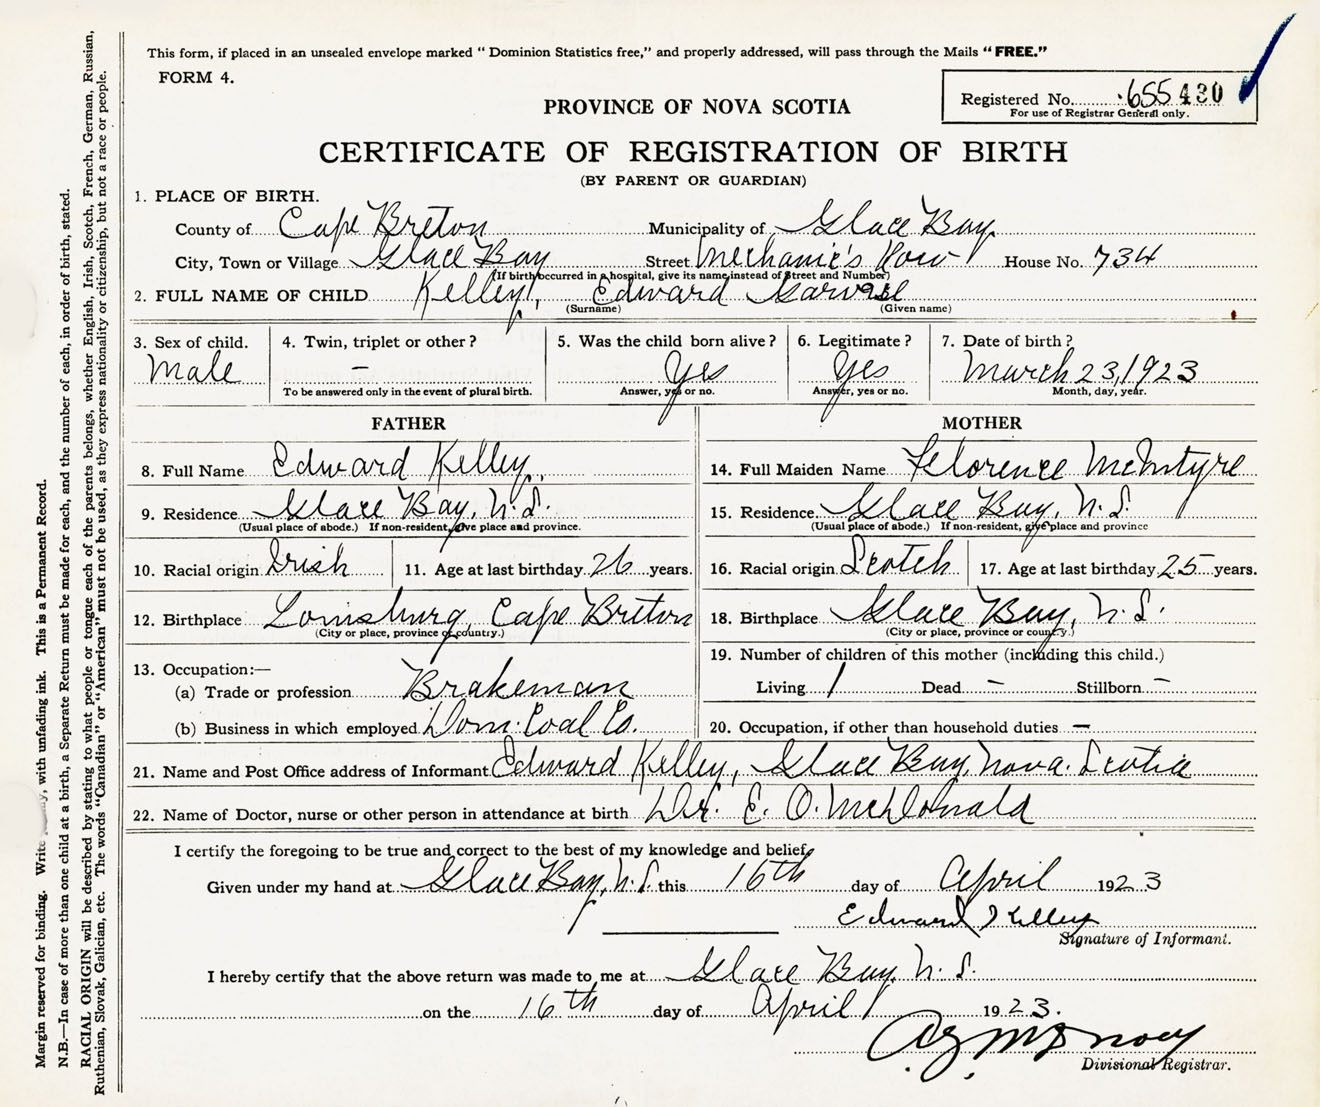 This form, if placed in an unsealed envelope marked " Dominion Statistics free," and properly addressed, will pass through the Mails " FREE."
FORM 4.
Registered No. 655430
For use of Registrar General only.
PROVINCE OF NOVA SCOTIA
CERTIFICATE OF REGISTRATION OF BIRTH
(BY PARENT OR GUARDIAN)
1. PLACE OF BIRTH.
County of Cape Breton Municipality of Glace Bay
City, Town or Village Glace Bay Street Mechanic's Row House No. 734
(If birth occurred in a hospital, give its name instead of Street and Number)
2. FULL NAME OF CHILD Kelley, Edward
(Surname) (Given name)
3. Sex of child. 4. Twin, triplet or other ? 5. Was the child born alive? 6. Legitimate ? 7. Date of birth ?
Male – Yes Yes March 23, 1923
To be answered only in the event of plural birth. Answer, yes or no. Answer, yes or no. Month, day, year.
FATHER MOTHER
8. Full Name Edward Kelley 14. Full Maiden Name Florence McIntyre
9. Residence Glace Bay, N.S. 15. Residence Glace Bay, N.S.
(Usual place of abode.) If non-resident, give place and province. (Usual place of abode.) If non-resident, give place and province
10. Racial origin Irish 11. Age at last birthday 26 years. 16. Racial origin Scotch 17. Age at last birthday 25 years.
12. Birthplace Louisburg, Cape Breton 18. Birthplace Glace Bay, N.S.
(City or place, province or country.) (City or place, province or country.)
19. Number of children of this mother (including this child.)
13. Occupation:—
(a) Trade or profession Brakeman Living 1 Dead – Stillborn –
(b) Business in which employed Dom. Coal Co. 20. Occupation, if other than household duties –
21. Name and Post Office address of Informant Edward Kelley, Glace Bay, Nova Scotia
22. Name of Doctor, nurse or other person in attendance at birth Dr. E. O. McDonald
I certify the foregoing to be true and correct to the best of my knowledge and belief,
Given under my hand at Glace Bay, N.S. this 16th day of April 1923
Edward J Kelley
Signature of Informant.
I hereby certify that the above return was made to me at Glace Bay, N. S.
on the 16th day of April 1923.
Divisional Registrar.
Margin reserved for binding. Write with unfading ink. This is a Permanent Record.
N.B.—In case of more than one child at a birth, a Separate Return must be made for each, and the number of each, in order of birth, stated.
RACIAL ORIGIN will be described by stating to what people or tongue each of the parents belongs, whether English, Irish, Scotch, French, German, Russian,
Ruthenian, Slovak, Galician, etc. The words "Canadian" or "American" must not be used, as they express nationality or citizenship, but not a race or people.